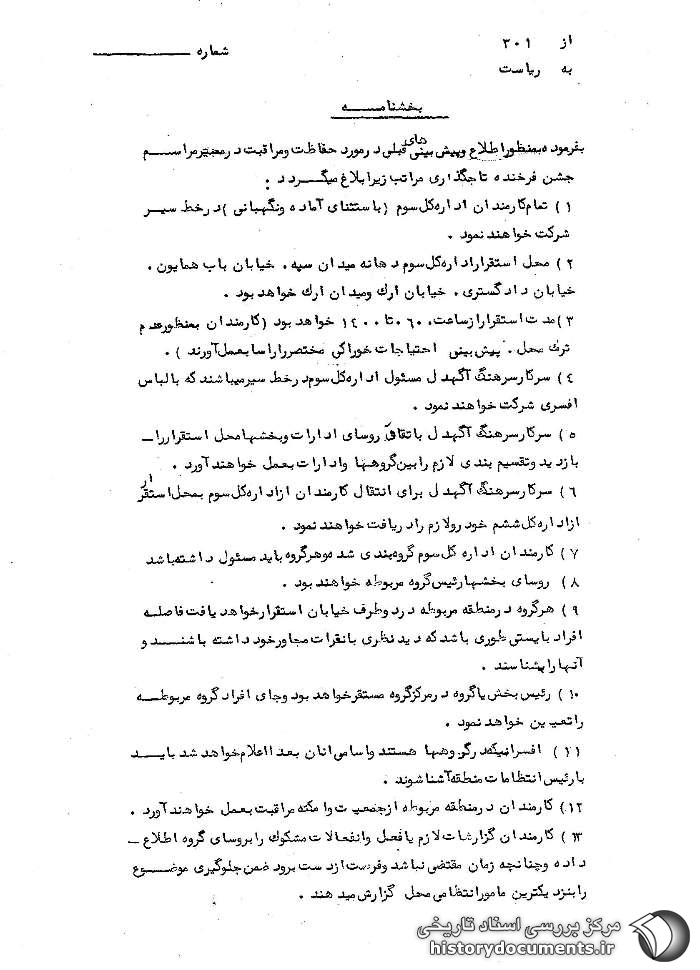 از ۳۰۱
شماره
به ریاست
بخشنامه
بفرموده بمنظور اطلاع و پیش بینی های قبلی در مورد حفاظت و مراقبت در مراسم
جشن فرخنده تاجگذاری مراتب زیر ابلاغ میگردد :
۱) تمام کارمندان اداره کل سوم (باستثنای آماده و نگهبانی) در خط سیر
شرکت خواهند نمود .
۲) محل استقرار اداره کل سوم دهانه میدان سپه . خیابان باب همایون .
خیابان دادگستری . خیابان ارك و میدان ارك خواهد بود .
۳) مدت استقرار از ساعت ۰۶۰۰ تا ۱۴۰۰ خواهد بود (کارمندان بمنظور عدم
ترك محل . پیش بینی احتیاجات خوراکی مختصر را راسا بعمل آورند) .
۴) سرکار سرهنگ آگهدل مسئول اداره کل سوم در خط سیر میباشند که با لباس
افسری شرکت خواهند نمود .
۵) سرکار سرهنگ آگهدل باتفاق روسای ادارات و بخشها محل استقرار را
بازدید و تقسیم بندی لازم را بین گروهها و ادارات بعمل خواهند آورد .
۶) سرکار سرهنگ آگهدل برای انتقال کارمندان از اداره کل سوم بمحل استقرار
از اداره کل ششم خودرو لازم را دریافت خواهند نمود .
۷) کارمندان اداره کل سوم گروه بندی شده و هر گروه باید مسئول داشته باشد
۸) روسای بخشها رئیس گروه مربوطه خواهند بود .
۹) هر گروه در منطقه مربوطه در دو طرف خیابان استقرار خواهد یافت فاصله
افراد بایستی طوری باشد که دید نظری با نفرات مجاور خود داشته باشند و
آنها را بشناسند .
۱۰) رئیس بخش یا گروه در مرکز گروه مستقر خواهد بود و جای افراد گروه مربوطه
را تعیین خواهد نمود .
۱۱) افسرانیکه در گروهها هستند و اسامی آنان بعدا اعلام خواهد شد باید
با رئیس انتظامات منطقه آشنا شوند .
۱۲) کارمندان در منطقه مربوطه از جمعیت و امکنه مراقبت بعمل خواهند آورد .
۱۳) کارمندان گزارشات لازم یا فعل و انفعالات مشکوك را بروسای گروه اطلاع
داده و چنانچه زمان مقتضی نباشد و فرصت از دست برود ضمن جلوگیری موضوع
را بنزدیکترین مامور انتظامی محل گزارش میدهند .
مرکز بررسی اسناد تاریخی
historydocuments.ir